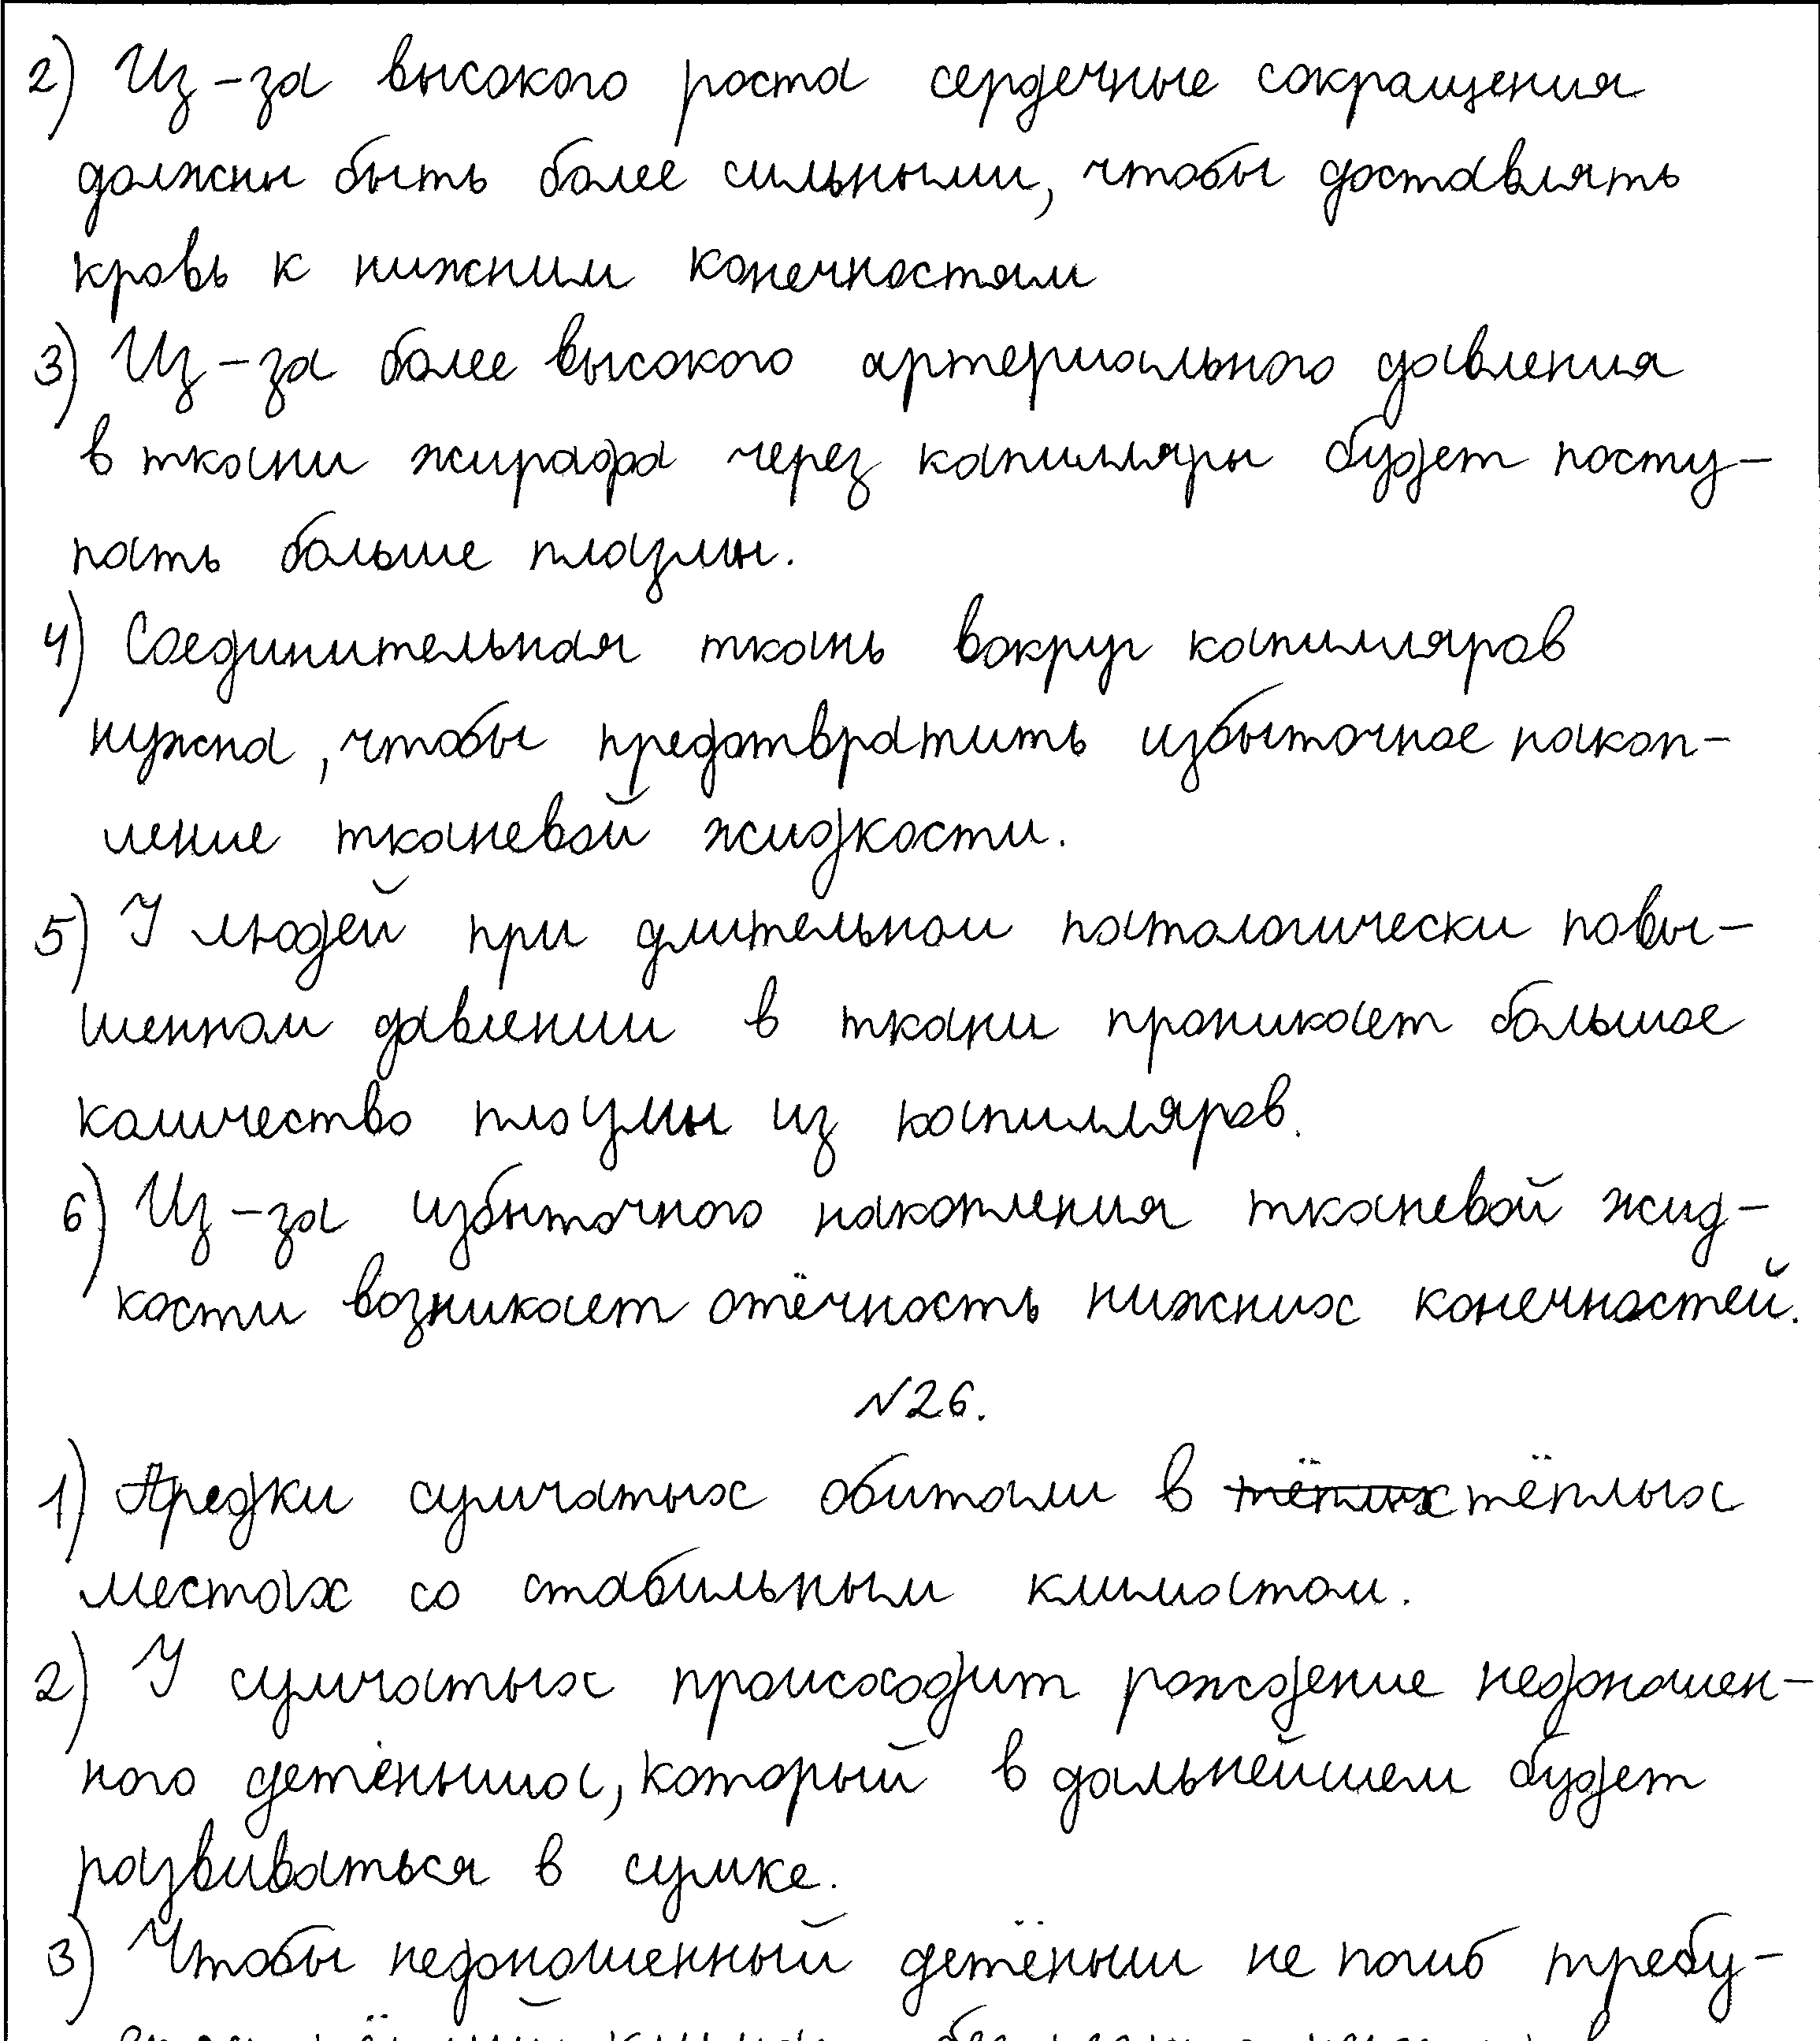 2) Из-за высокого роста сердечные сокращения
должны быть более сильными, чтобы доставлять
кровь к нижним конечностям
3) Из-за более высокого артериального давления
в ткани жирафа через капилляры будет посту-
пать больше плазмы.
4) Соединительная ткань вокруг капилляров
нужна, чтобы предотвратить избыточное накоп-
ление тканевой жидкости.
5) У людей при длительном патологически повы-
шенном давлении в ткани проникает большое
количество плазмы из капилляров.
6) Из-за избыточного накопления тканевой жид-
кости возникает отёчность нижних конечностей.
№26.
1) Предки сумчатых обитали в тёплых тёплых
местах со стабильным климатом.
2) У сумчатых происходит рождение недоношен-
ного детёныша, который в дальнейшем будет
развиваться в сумке.
3) Чтобы недоношенный детёныш не погиб требу-